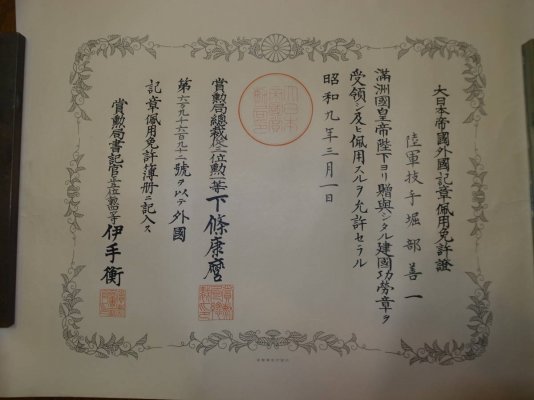 大日本帝國外國記章佩用免許證
陸軍技手堀部善一
滿洲國皇帝陛下ヨリ贈與シタル建國功勞章ヲ
受領シ及ヒ佩用スルヲ允許セラル
昭和九年三月一日
賞勲局總裁從三位勲二等下條康麿
第六九六九十二號ヲ以テ外國
記章佩用免許簿册ニ記入ス
賞勲局書記官 伊手衡